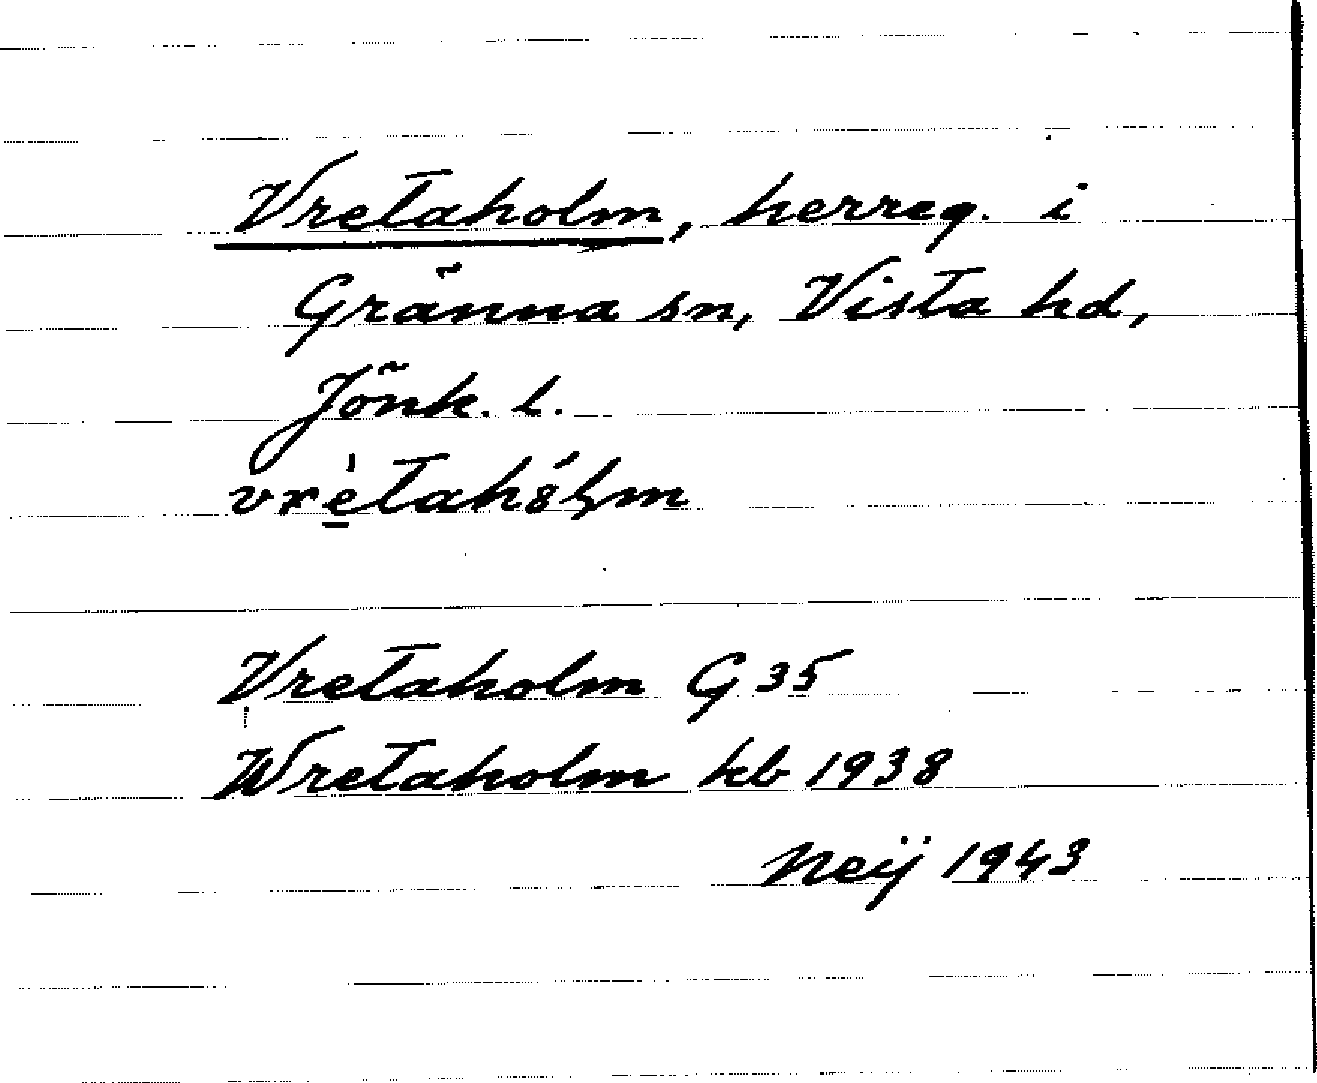 Vretaholm, herreg. i
Gränna sn, Vista hd,
Jönk. l.
Vretaholm G 35
Wretaholm kb 1938
Neij 1943